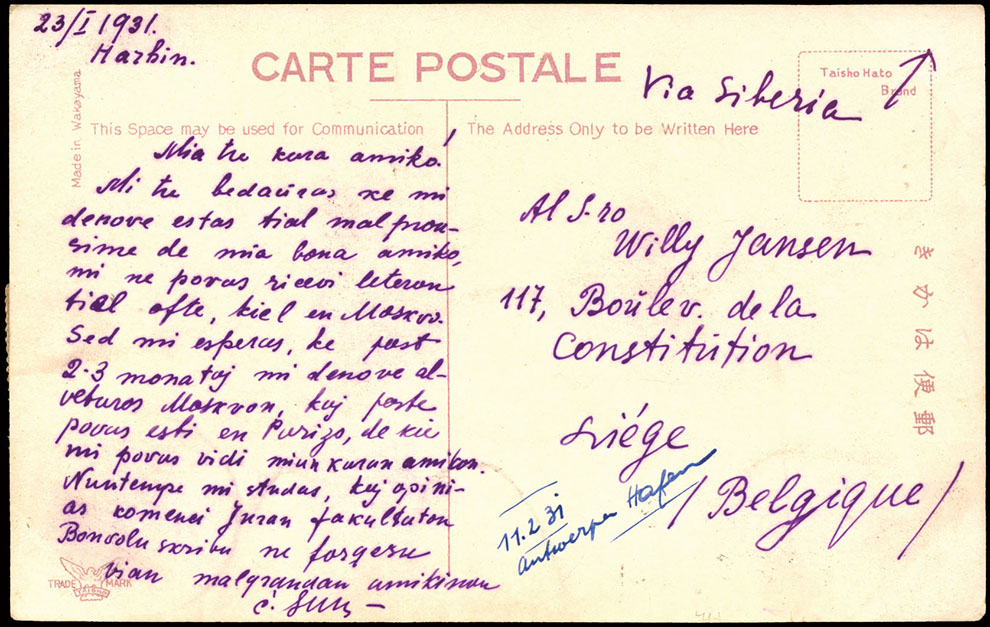 23/I 1931.
Harbin.
CARTE POSTALE
Via Siberia
Taisho Hato
Brand
Made in Wakayama
This Space may be used for Communication
The Address Only to be Written Here
Mia tre kara amiko!
Mi tre bedaŭras ke mi
denove estas tial malprok-
sime de mia bona amiko,
mi ne povas ricevi leteron
tiel ofte, kiel en Moskvo.
Sed mi esperas, ke post
2-3 monatoj mi denove al-
veturos Moskvon, kaj poste
povas esti en Parizo, de kie
mi povas vidi mian karan amikon.
Nuntempe mi studas, kaj opini-
as komenci Juran fakultaton
Bonvolu skribu ne forgesu
vian malgrandan amikinon
Al S-ro
Willy Jansen
117, Boulev. de la
Constitution
Liége
/Belgique/
11.2.31
Antwerpen Hafen
きかは便郵
TRADE MARK